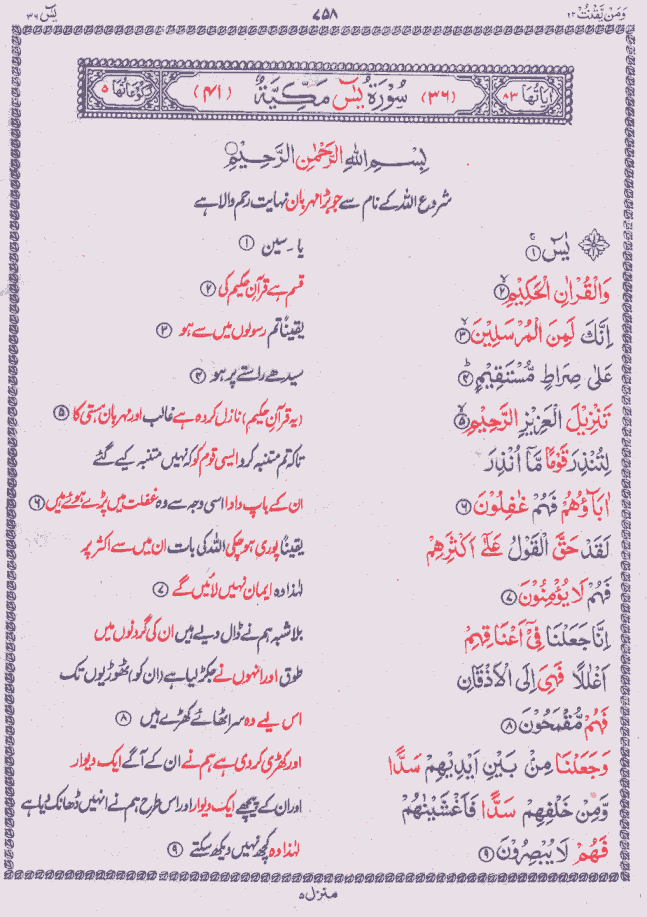 وَمَنْ يَّقْنُتْ ٢٢
٧٥٨
يٰسٓ ٣٦
اٰيَاتُهَا ٨٣
(٣٦) سُوْرَةُ يٰسٓ مَكِّيَّةٌ (٤١)
رُكُوْعَاتُهَا ٥
بِسْمِ اللهِ الرَّحْمٰنِ الرَّحِيْمِ
شروع اللہ کے نام سے جو بڑا مہربان نہایت رحم والا ہے
يٰسٓ ۚ ١
یا۔سین ١
وَالْقُرْاٰنِ الْحَكِيْمِ ۙ ٢
قسم ہے قرآنِ حکیم کی ٢
اِنَّكَ لَمِنَ الْمُرْسَلِيْنَ ۙ ٣
یقیناً تم رسولوں میں سے ہو ٣
عَلٰى صِرَاطٍ مُّسْتَقِيْمٍ ؕ ٤
سیدھے راستے پر ہو ۴
تَنْزِيْلَ الْعَزِيْزِ الرَّحِيْمِ ۙ ٥
(یہ قرآنِ حکیم) نازل کردہ ہے غالب اور مہربان ہستی کا ۵
لِتُنْذِرَ قَوْمًا مَّاۤ اُنْذِرَ
تاکہ تم متنبہ کرو ایسی قوم کو کہ نہیں متنبہ کیے گئے
اٰبَآؤُهُمْ فَهُمْ غٰفِلُوْنَ ٦
ان کے باپ دادا اسی وجہ سے وہ غفلت میں پڑے ہوئے ہیں ٦
لَقَدْ حَقَّ الْقَوْلُ عَلٰٓى اَكْثَرِهِمْ
یقیناً پوری ہو چکی اللہ کی بات ان میں سے اکثر پر
فَهُمْ لَا يُؤْمِنُوْنَ ٧
لہٰذا وہ ایمان نہیں لائیں گے ٧
اِنَّا جَعَلْنَا فِيْۤ اَعْنَاقِهِمْ
بلا شبہ ہم نے ڈال دیے ہیں ان کی گردنوں میں
اَغْلٰلًا فَهِيَ اِلَى الْاَذْقَانِ
طوق اور انہوں نے جکڑ لیا ہے (ان کو) ٹھوڑیوں تک
فَهُمْ مُّقْمَحُوْنَ ٨
اس لیے وہ سر اٹھائے کھڑے ہیں ٨
وَجَعَلْنَا مِنْۢ بَيْنِ اَيْدِيْهِمْ سَدًّا
اور کھڑی کر دی ہے ہم نے ان کے آگے ایک دیوار
وَّمِنْ خَلْفِهِمْ سَدًّا فَاَغْشَيْنٰهُمْ
اور ان کے پیچھے ایک دیوار اور اس طرح ہم نے انہیں ڈھانک دیا ہے
فَهُمْ لَا يُبْصِرُوْنَ ٩
لہٰذا وہ کچھ نہیں دیکھ سکتے ٩
منزل ٥